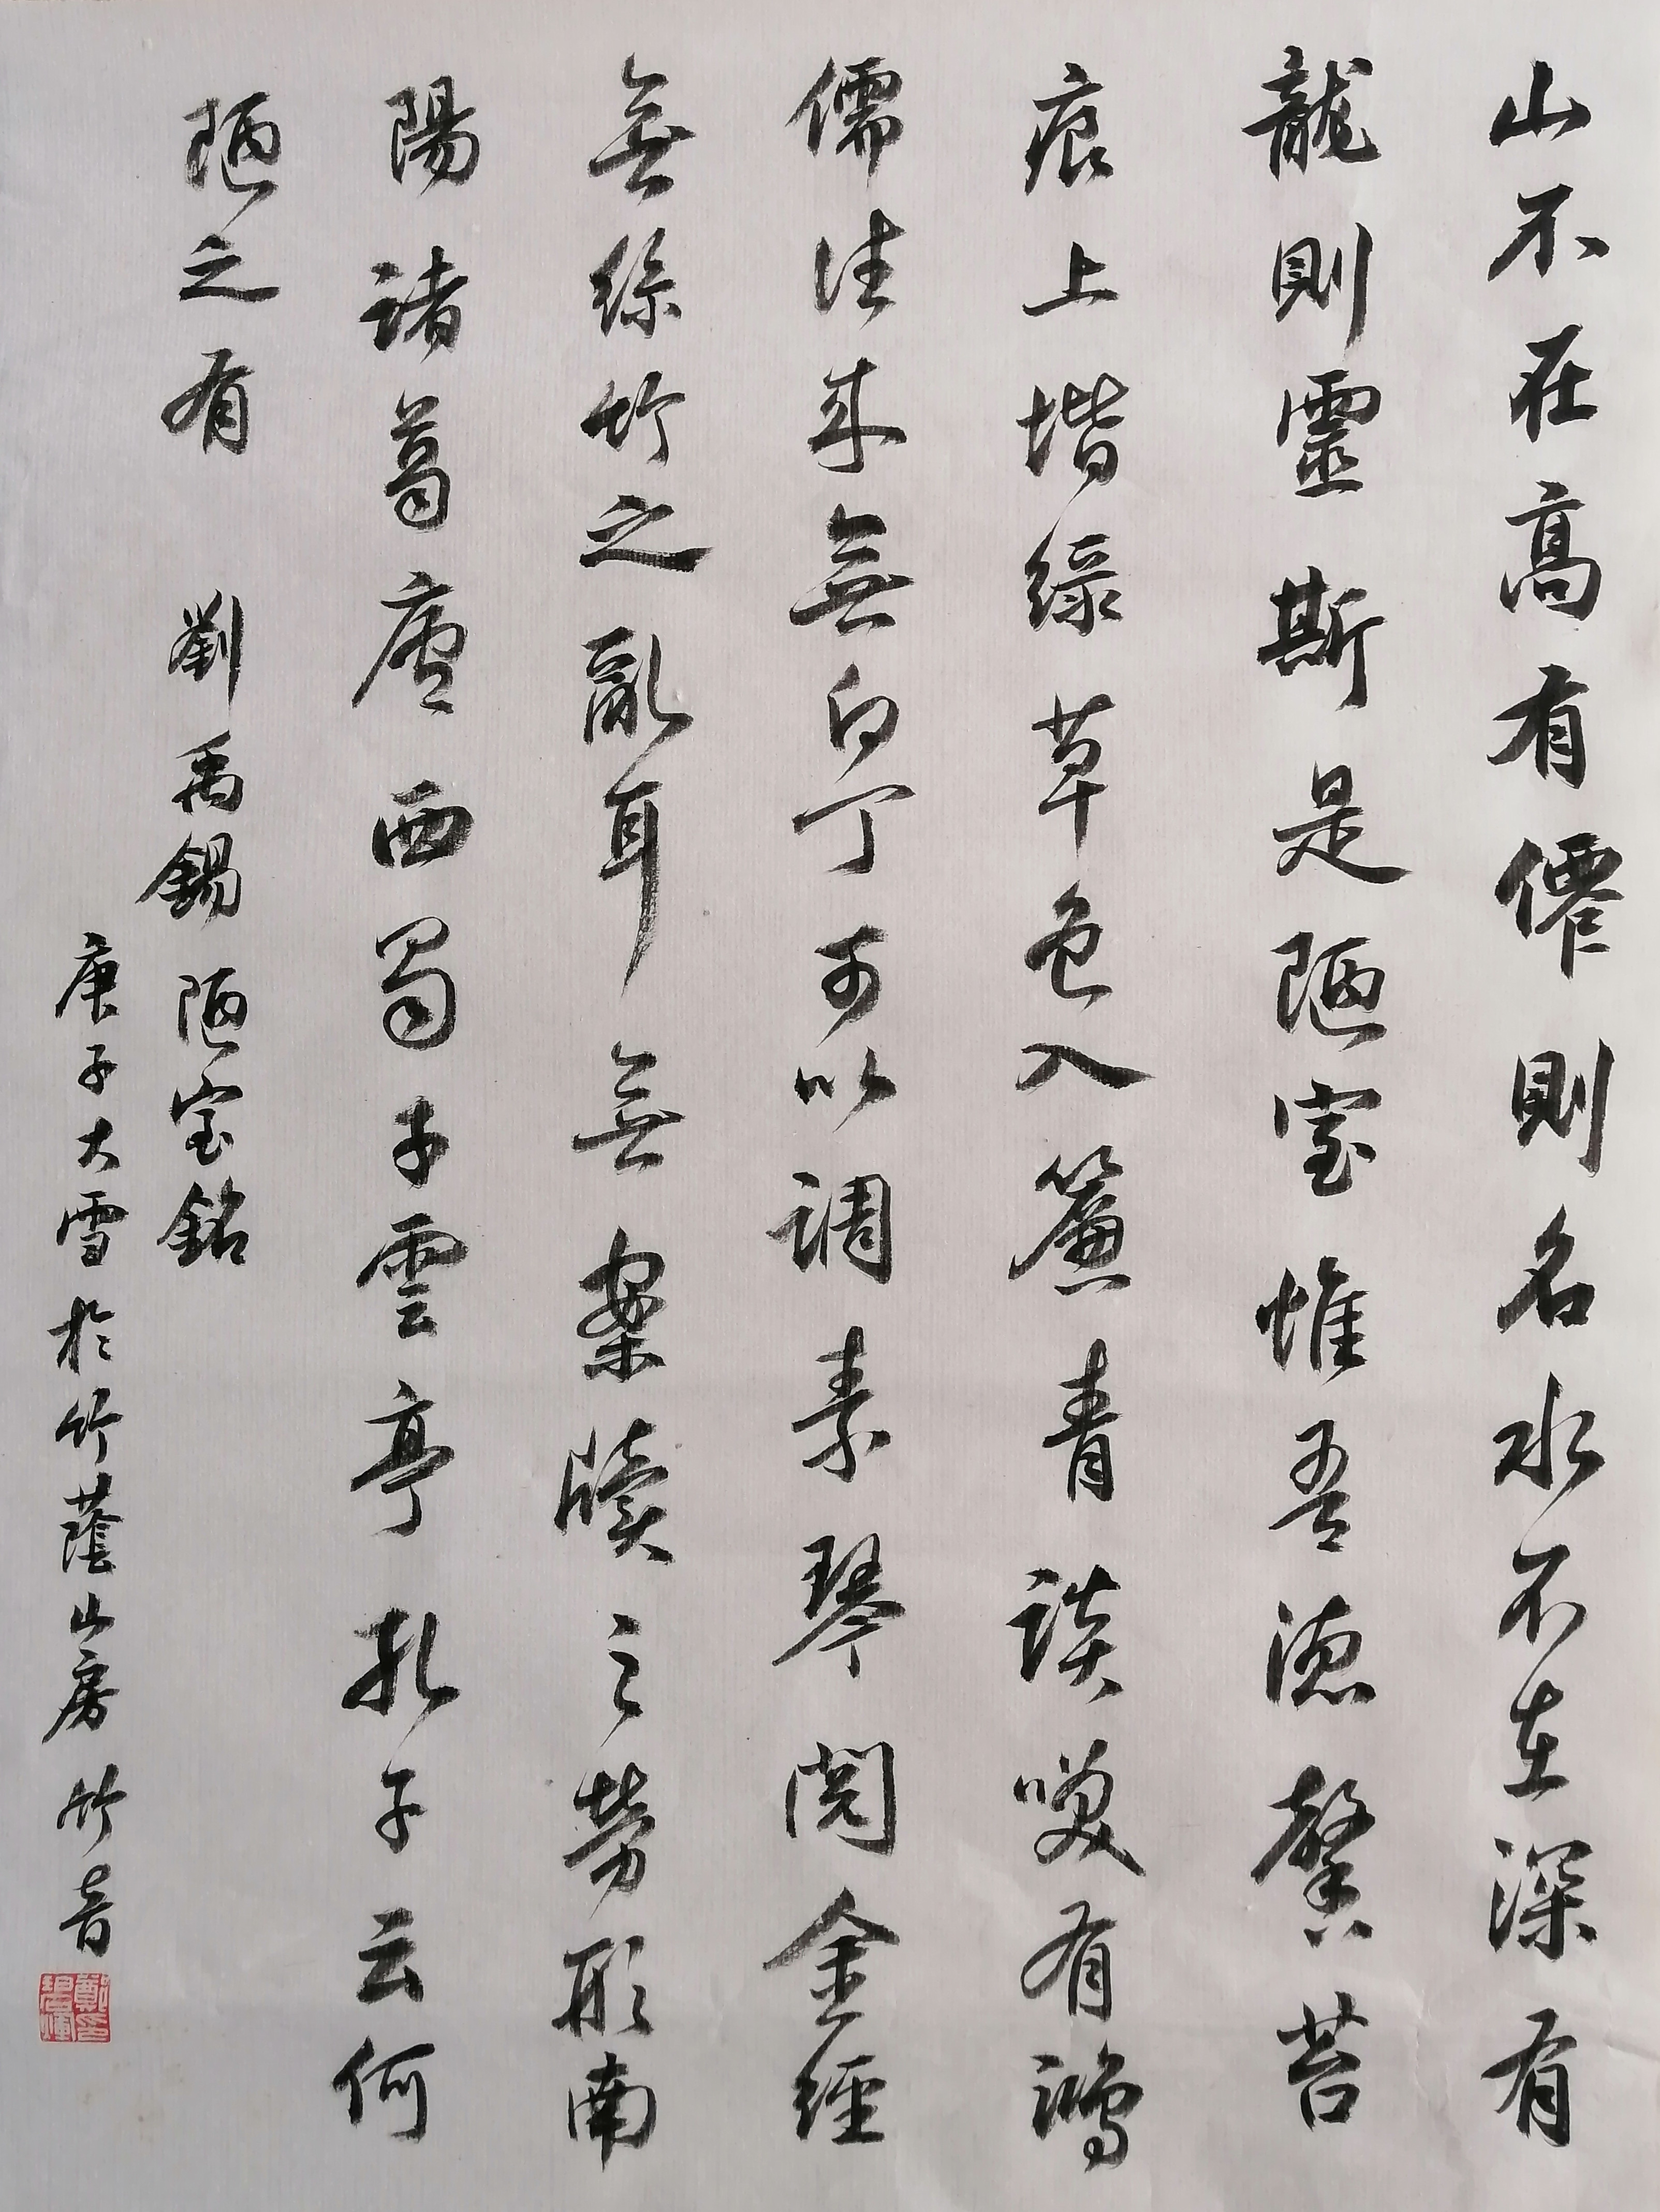 山不在高有僊則名水不在深有
龍則靈斯是陋室惟吾德馨苔
痕上堦緑草色入簾青談咲有鴻
儒往来無白丁可以調素琴閲金經
無絲竹之亂耳無案牘之勞形南
陽諸葛廬西蜀子雲亭孔子云何
陋之有 劉禹錫 陋室銘
庚子大雪於竹蔭山房 竹音